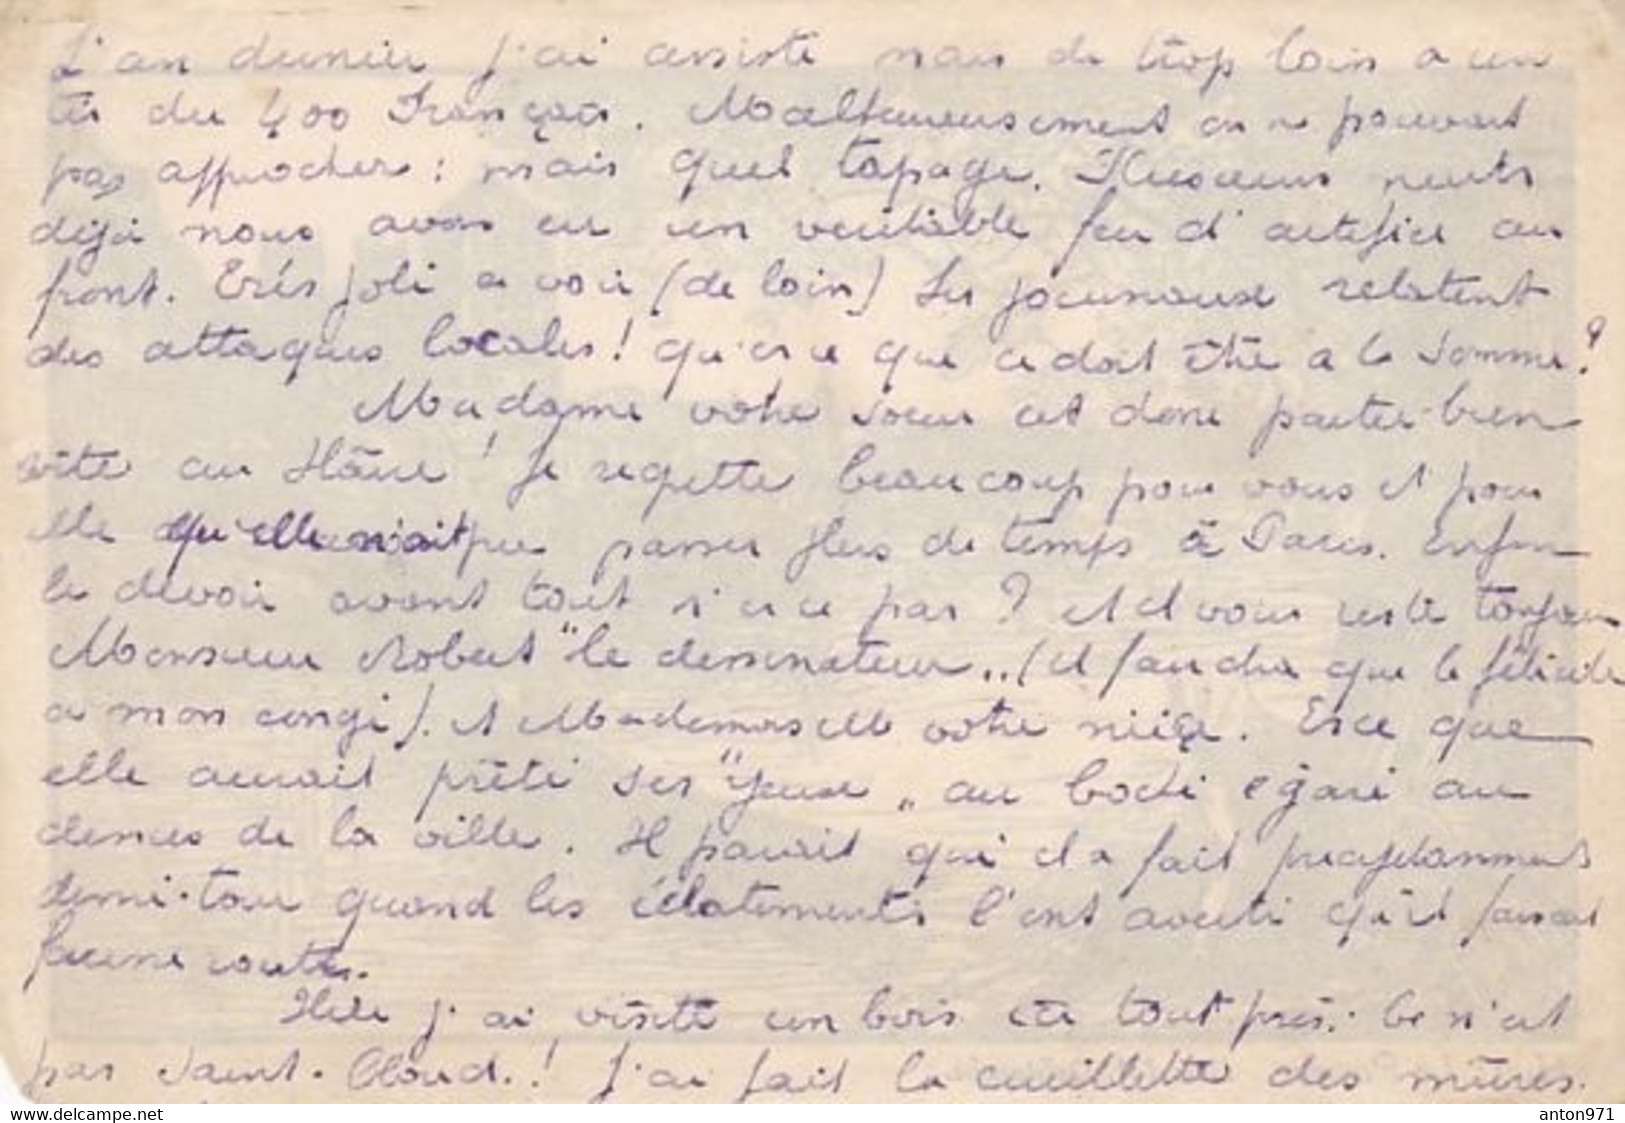 L'an dernier j'ai assisté mais de trop loin a un
tir du 400 Français. Malheureusement on ne pouvait
pas approcher : mais quel tapage. Plusieurs nuits
déjà nous avons eu un veritable feu d'artifice au
front. Très joli a voir (de loin) Les journaux relatent
des attaques locales! qu'es ce que ce doit être a la Somme?
Madame votre soeur est donc partie bien
vite au Hâvre! Je regrette beaucoup pour vous et pour
elle qu'elle n'ait pu passer plus de temps à Paris. Enfin
le devoir avant tout n'es ce pas? et il vous reste toujours
Monsieur Robert "le dessinateur" (il faudra que le félicite
a mon congé). et Mademoiselle votre nièce. Es ce que
elle aurait prêté ses "yeux" au boche égaré au
dessus de la ville. Il parait qui il a fait
demi-tour quand les éclatements l'ont averti qu'il faisait
fausse route.
Hier j'ai visité un bois ici tout près. Ce n'est
pas Saint-Cloud.! J'ai fait la cueillette des mûres.
www.delcampe.net
anton971